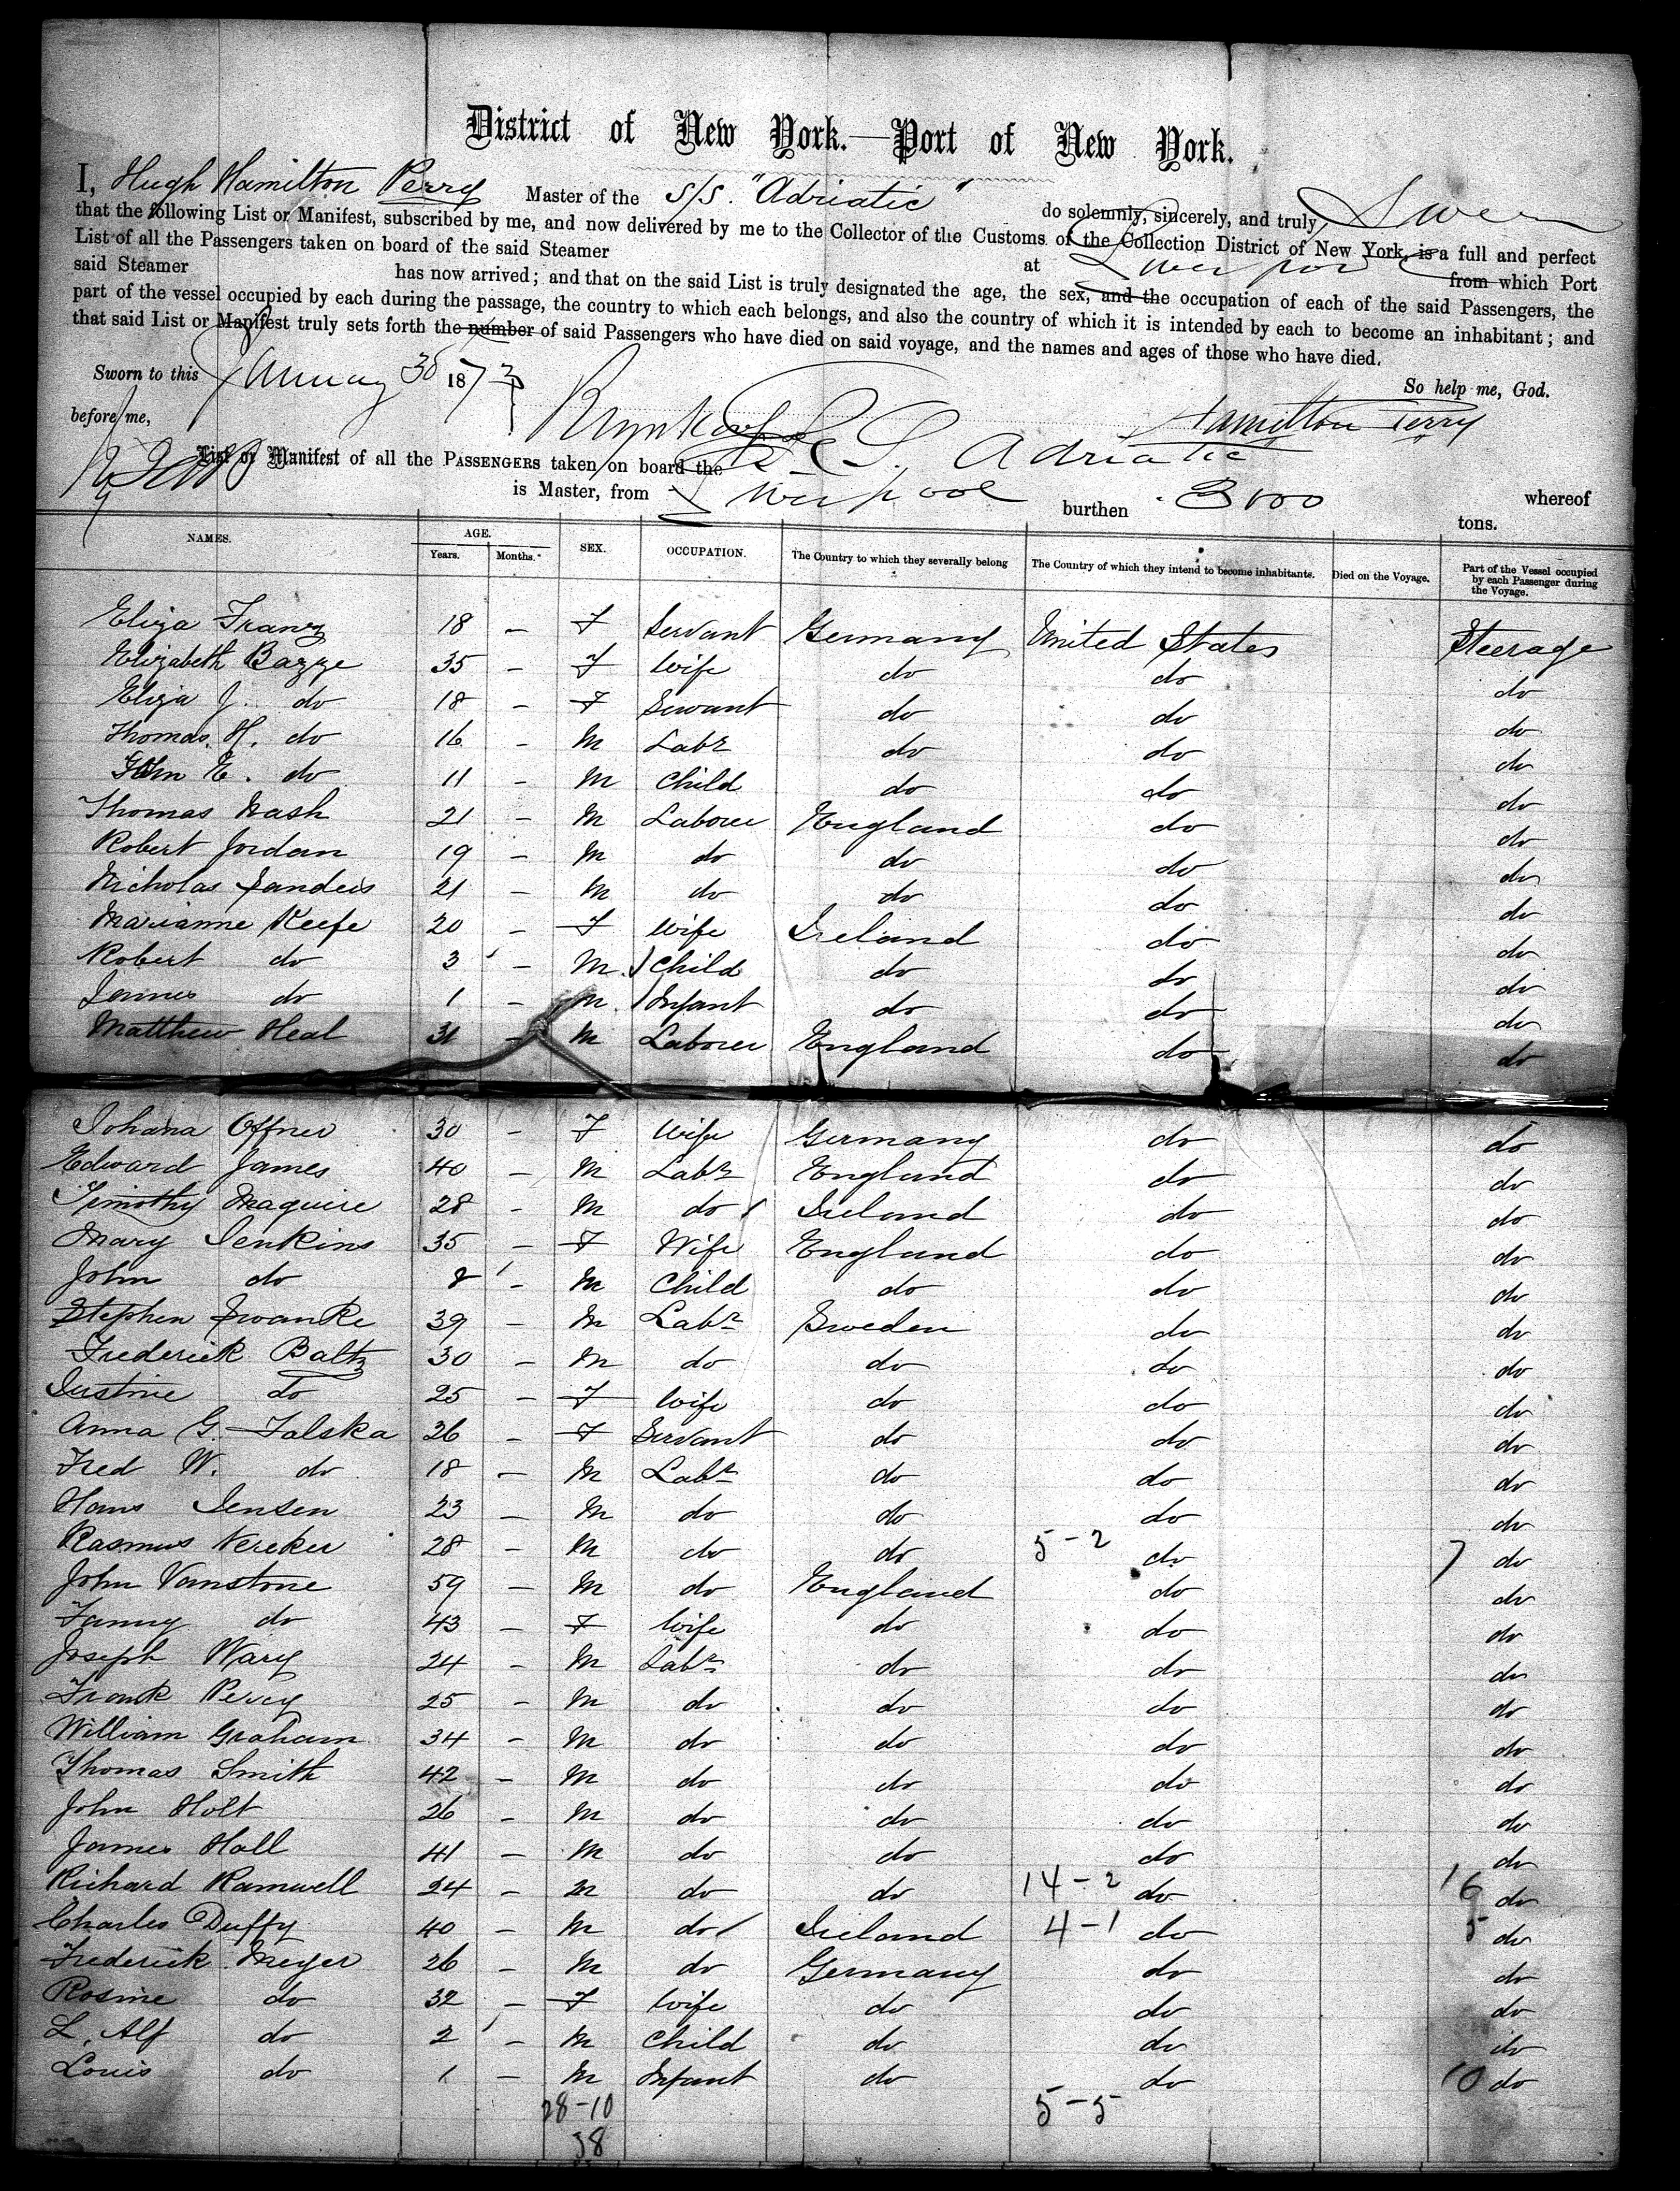 District of New York.—Port of New York.
I, Hugh Hamilton Perry Master of the S/S. "Adriatic" do solemnly, sincerely, and truly Swear
that the following List or Manifest, subscribed by me, and now delivered by me to the Collector of the Customs of the Collection District of New York, is a full and perfect
List of all the Passengers taken on board of the said Steamer at Liverpool from which Port
said Steamer has now arrived; and that on the said List is truly designated the age, the sex, and the occupation of each of the said Passengers, the
part of the vessel occupied by each during the passage, the country to which each belongs, and also the country of which it is intended by each to become an inhabitant; and
that said List or Manifest truly sets forth the number of said Passengers who have died on said voyage, and the names and ages of those who have died.
So help me, God.
Sworn to this January 30 1873
before me, Hamilton Perry
List or Manifest of all the PASSENGERS taken on board the S.S. Adriatic whereof
is Master, from Liverpool burthen 3000 tons.
NAMES. AGE. Years. Months. SEX. OCCUPATION. The Country to which they severally belong The Country of which they intend to become inhabitants. Died on the Voyage. Part of the Vessel occupied by each Passenger during the Voyage.
Eliza Franz 18 - F Servant Germany United States Steerage
Elizabeth Bazze 35 - F Wife do do do
Eliza J. do 18 - F Servant do do do
Thomas H. do 16 - M Labr do do do
John E. do 11 - M Child do do do
Thomas Nash 21 - M Laborer England do do
Robert Jordan 19 - M do do do do
Nicholas Sanders 21 - M do do do do
Marianne Keefe 20 - F Wife Ireland do do
Robert do 3 - M Child do do do
James do 1 - M Infant do do do
Matthew Heal 31 - M Laborer England do do
Johana Offner 30 - F Wife Germany do do
Edward James 40 - M Labr England do do
Timothy Maguire 28 - M do Ireland do do
Mary Jenkins 35 - F Wife England do do
John do 8 - M Child do do do
Stephen Swanke 39 - M Labr Sweden do do
Frederick Baltz 30 - M do do do do
Justine do 25 - F Wife do do do
Anna G. Falska 26 - F Servant do do do
Fred W. do 18 - M Labr do do do
Hans Jensen 23 - M do do do do
Rasmus Nereker 28 - M do do 5-2 do 7 do
John Vanstone 59 - M do England do do
Fanny do 43 - F Wife do do do
Joseph Wary 24 - M Labr do do do
Frank Percy 25 - M do do do do
William Graham 34 - M do do do do
Thomas Smith 42 - M do do do do
John Holt 26 - M do do do do
James Hall 41 - M do do do do
Richard Ramwell 24 - M do do 14-2 do 16 do
Charles Duffy 40 - M do Ireland 4-1 do 5 do
Frederick Meyer 26 - M do Germany do do
Rosine do 32 - F Wife do do do
L. Alf do 2 - M Child do do do
Louis do 1 - M Infant do do 10 do
28-10 5-5
38